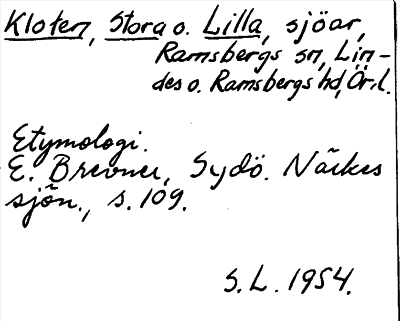 Kloten, Stora o. Lilla, sjöar,
Ramsbergs sn, Lin-
des o. Ramsbergs hd, Ör. l.
Etymologi.
E. Brevner, Sydö. Närkes
sjön., s. 109.
S. L. 1954.